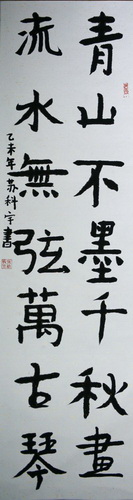 青山不墨千秋畫
流水無弦萬古琴
乙未年苏科宇書